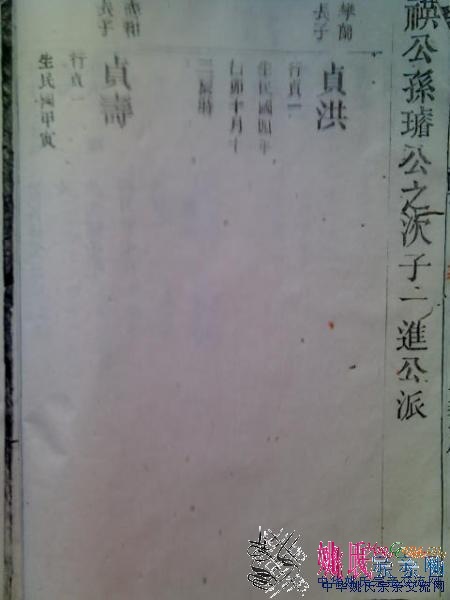 祺公孫璿公之次子二進公派
長子
貞洪
行貞一
生民國四年
乙卯十月十
長子
貞壽
行貞一
生民國甲寅
姚氏宗亲网
中华姚氏宗亲交流网